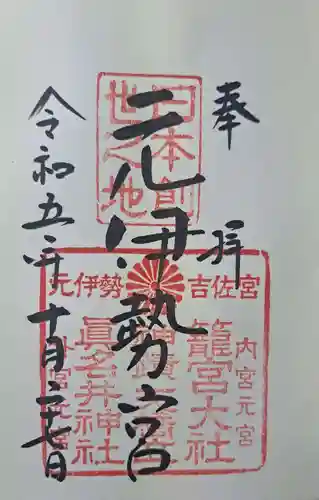 奉拝
日本創世之地
元伊勢宮
元伊勢 吉佐宮
内宮元宮
籠宮大社
眞名井神社
外宮元宮
令和五年十月二七日